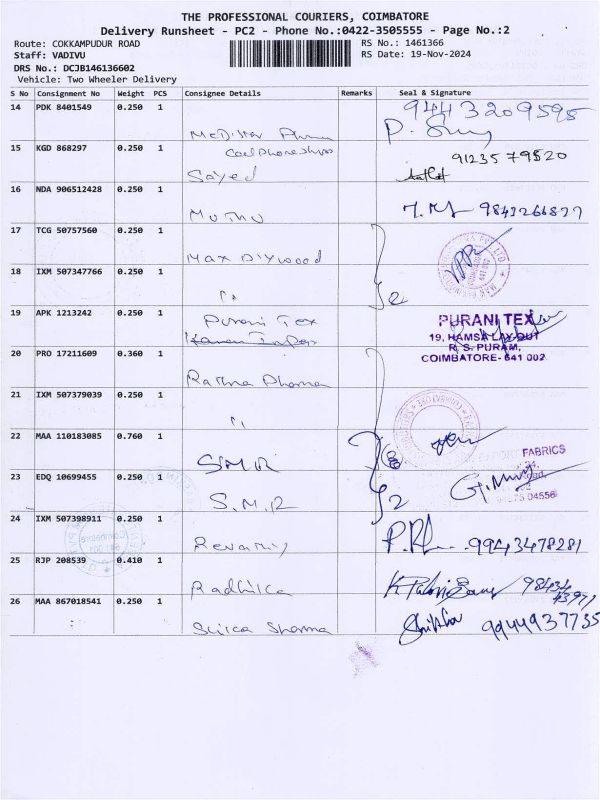 THE PROFESSIONAL COURIERS, COIMBATORE
Delivery Runsheet - PC2 - Phone No.:0422-3505555 - Page No.:2
Route: COKKAMPUDUR ROAD
RS No.: 1461366
Staff: VADIVU
RS Date: 19-Nov-2024
DRS No.: DCJB146136602
Vehicle: Two Wheeler Delivery
S No Consignment No Weight PCS Consignee Details Remarks Seal & Signature
14 PDK 8401549 0.250 1
9443209595
15 KGD 868297 0.250 1
Sayed
9123579520
16 NDA 906512428 0.250 1
Muthu
9843266877
17 TCG 50757560 0.250 1
Max Diywood
18 IXM 507347766 0.250 1
"
2
19 APK 1213242 0.250 1
Purani Tex
PURANI TEX
19, HAMSA LAY-OUT
R. S. PURAM,
COIMBATORE- 641 002
20 PRO 17211609 0.360 1
Ratna Dhama
21 IXM 507379039 0.250 1
"
22 MAA 110183085 0.760 1
SMR
FABRICS
23 EDQ 10699455 0.250 1
S.M.R
2
04556
24 IXM 507398911 0.250 1
Revathy
9943478281
25 RJP 208539 0.410 1
Radhika
98434
43971
26 MAA 867018541 0.250 1
:
Sharma
9944937735